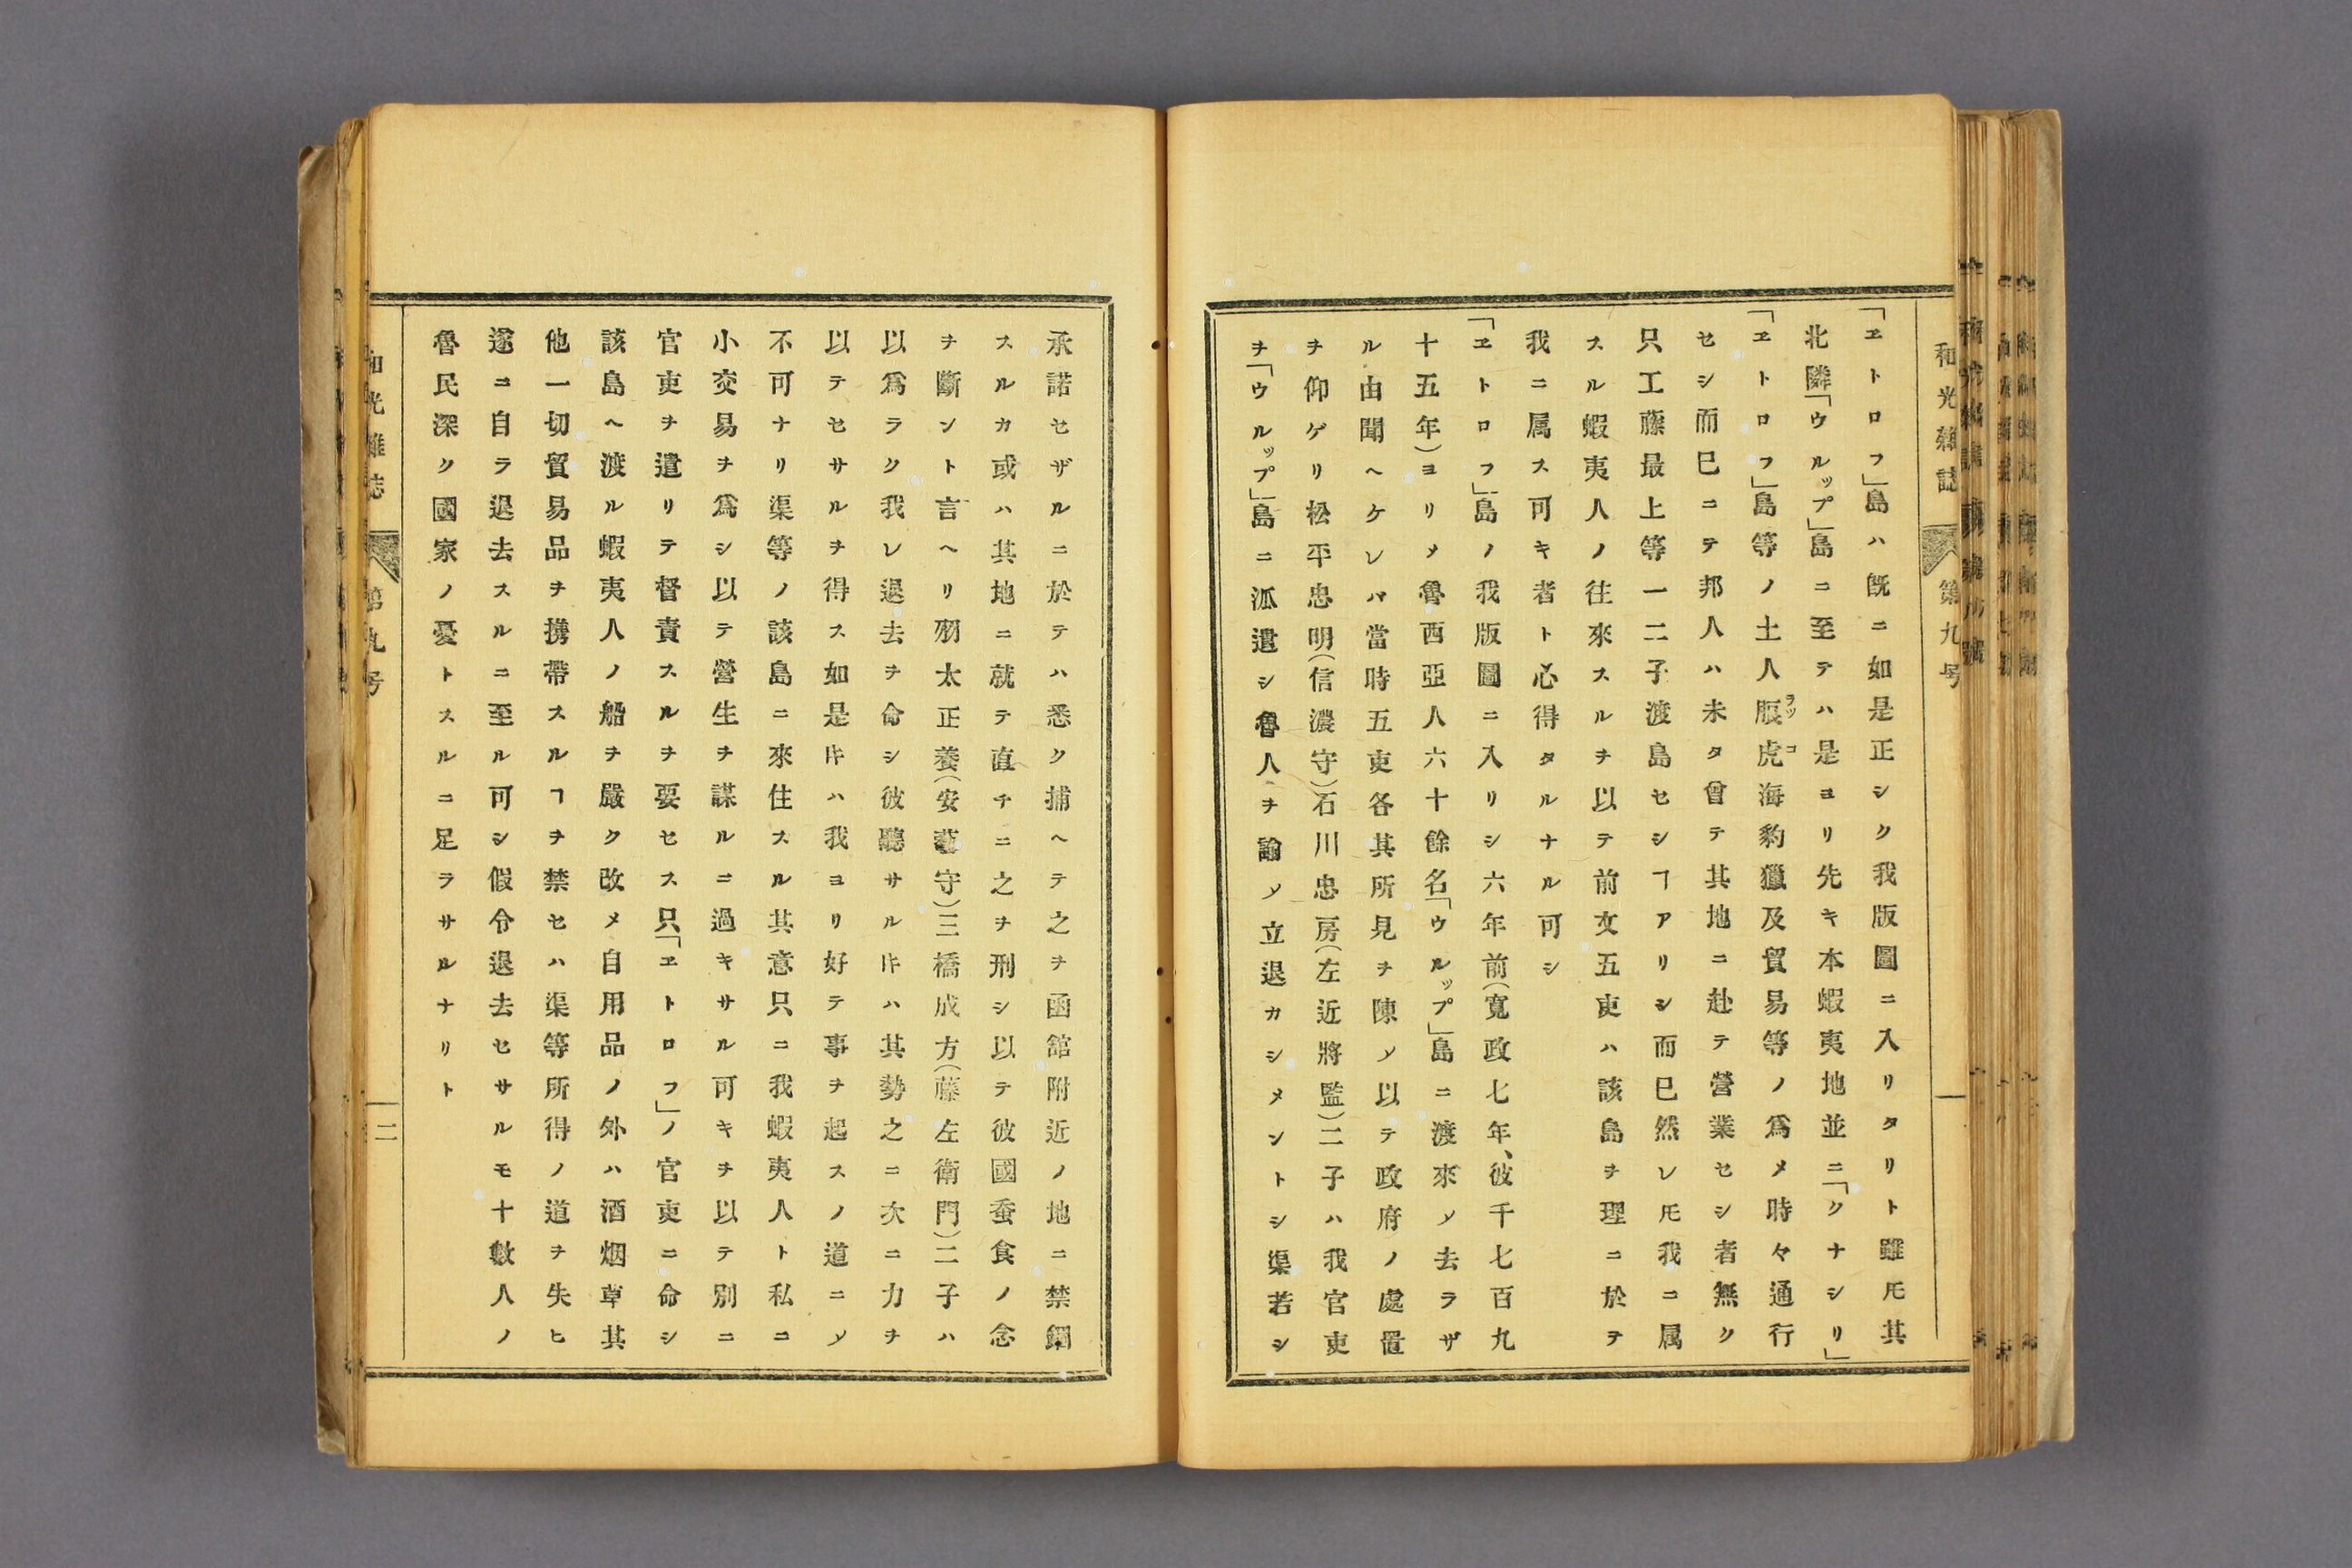 和光雜誌 第九号 一
「ヱトロフ」島ハ旣ニ如是正シク我版圖ニ入リタリト雖𪜈其
北隣「ウルップ」島ニ至テハ是ヨリ先キ本蝦夷地並ニ「クナシリ」
「ヱトロフ」島等ノ土人脮虎海豹獵及貿易等ノ爲メ時々通行
ラッコ
セシ而巳ニテ邦人ハ未タ曾テ其地ニ赴テ營業セシ者無ク
只工藤最上等一二子渡島セシヿアリシ而已然レ𪜈我ニ属
スル蝦夷人ノ往來スルヲ以テ前文五吏ハ該島ヲ理ニ於テ
我ニ属ス可キ者ト心得タルナル可シ
「ヱトロフ」島ノ我版圖ニ入リシ六年前(寬政七年、彼千七百九
十五年)ヨリメ魯西亞人六十餘名「ウルップ」島ニ渡來ソ去ラザ
ル由聞ヘケレバ當時五吏各其所見ヲ陳ソ以テ政府ノ處置
ヲ仰ゲリ松平忠明(信濃守)石川忠房(左近將監)二子ハ我官吏
ヲ「ウルップ」島ニ派遣シ魯人ヲ諭ソ立退カシメントシ渠若シ
承諾セザルニ於テハ悉ク捕ヘテ之ヲ函舘附近ノ地ニ禁錮
スルカ或ハ其地ニ就テ直チニ之ヲ刑シ以テ彼國蚕食ノ念
ヲ斷ント言ヘリ羽太正養(安藝守)三橋成方(藤左衛門)二子ハ
以爲ラク我レ退去ヲ命シ彼聽サル𪜈ハ其勢之ニ次ニ力ヲ
以テセサルヲ得ス如是𪜈ハ我ヨリ好テ事ヲ起スノ道ニソ
不可ナリ渠等ノ該島ニ來住スル其意只ニ我蝦夷人ト私ニ
小交易ヲ爲シ以テ營生ヲ謀ルニ過キサル可キヲ以テ別ニ
官吏ヲ遣リテ督責スルヲ要セス只「ヱトロフ」ノ官吏ニ命シ
該島ヘ渡ル蝦夷人ノ船ヲ嚴ク改メ自用品ノ外ハ酒烟草其
他一切貿易品ヲ携帶スルヿヲ禁セハ渠等所得ノ道ヲ失ヒ
遂ニ自ラ退去スルニ至ル可シ假令退去セサルモ十數人ノ
魯民深ク國家ノ憂トスルニ足ラサルナリト
和光雜誌 第九号 二